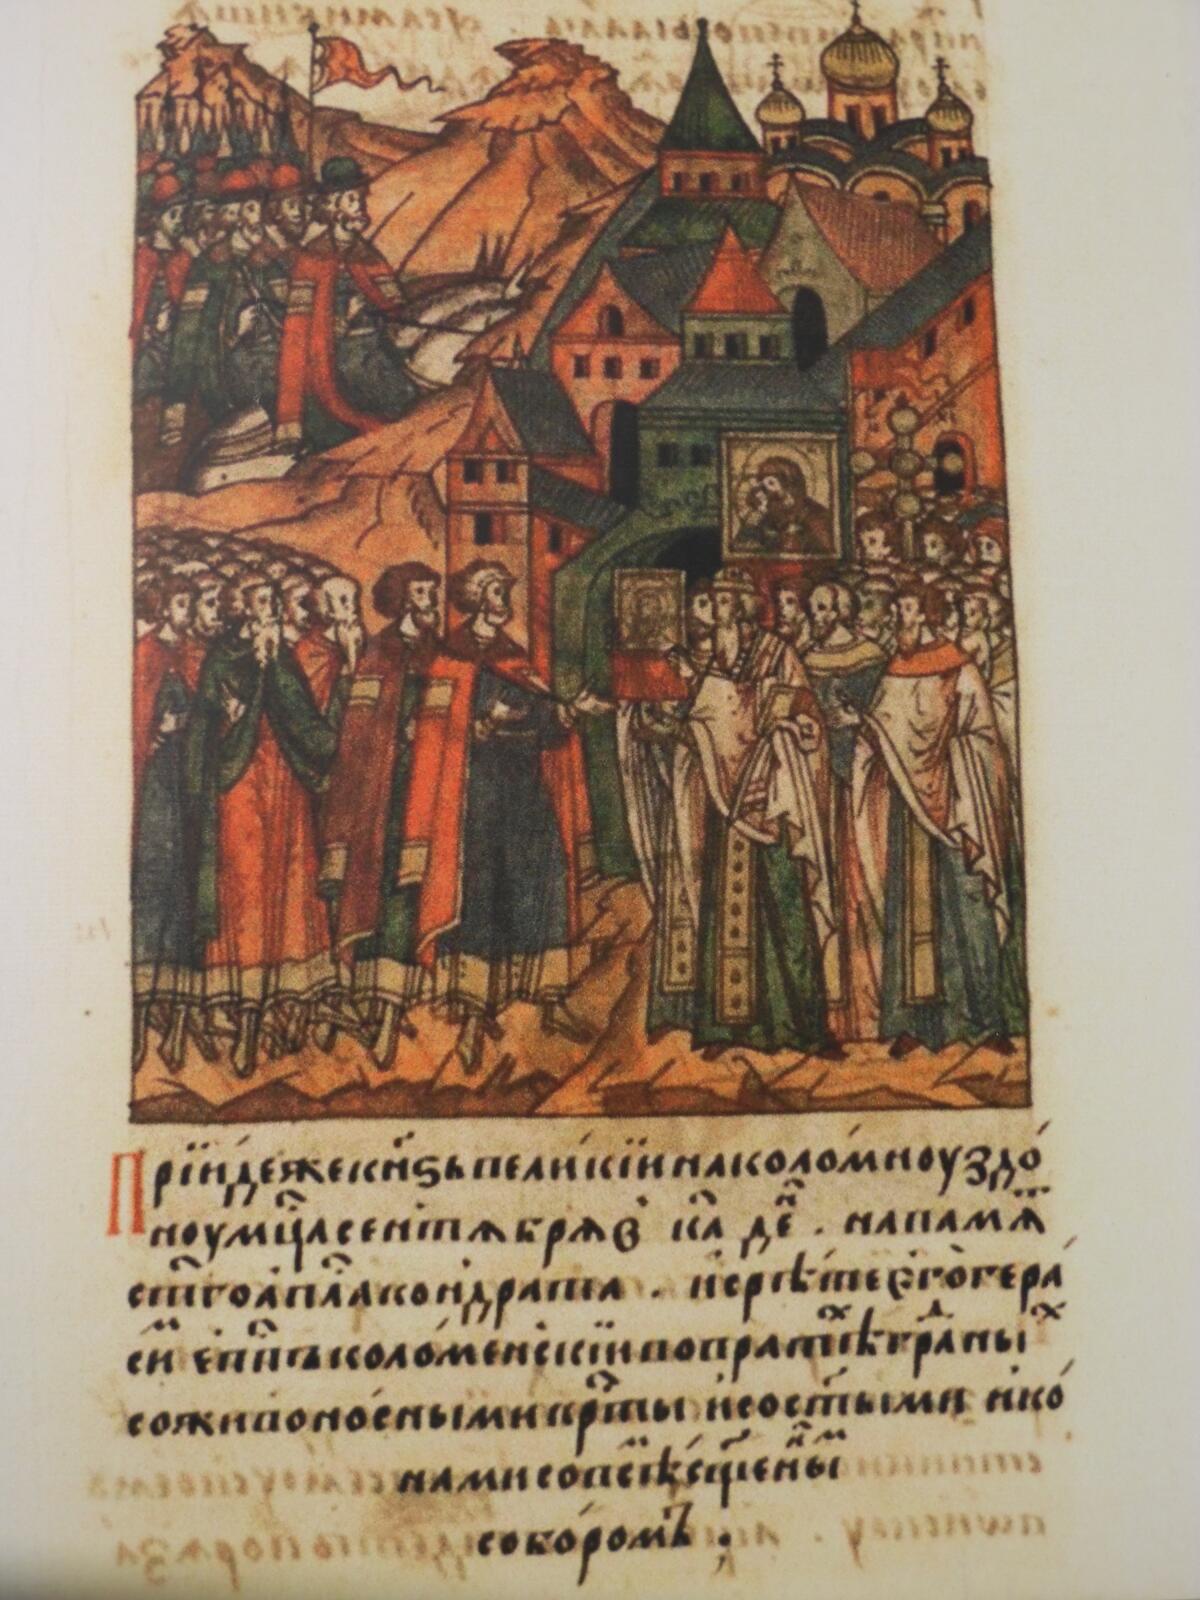 Прїиде же кн҃ѕь великїи на коломноу здо́
ноу мц҃а сентѧбрѧ в҃ кд҃ де҃ . на памѧ
ст҃го ап҃ла кондрата . и срѣте єго гера́
си еп҃пъ коло́менскїи во вратѣх гра́дных
со живоно́сными крт҃ы и со ст҃ыми ико́
нами со всѣ́м сщ҃е́нным
собо́ромъ ;